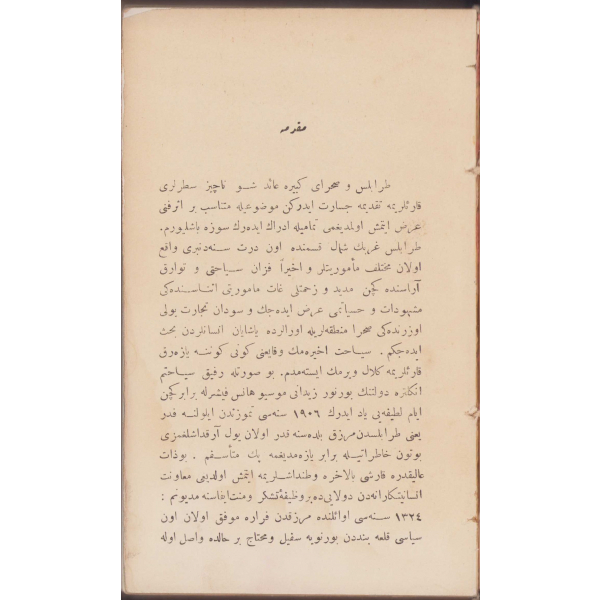 مقدمه
طرابلس و صحرای كبیره عائد شو ناچیز سطرلری
قارئلریمه تقدیمه جسارت ایدركن موضوعیله متناسب بر اثرفنی
عرض ایتمش اولمدیغمی تمامیله ادراك ایده‌رك سوزه باشلیورم.
طرابلس غربك شمال قسمنده اون درت سنه‌دنبری واقع
اولان مختلف مأموریتلر و اخیراً فزان سیاحتی و توارق
آراسنده كچن مدید و زحمتلی غات مأموریتی اثناسنده‌كی
مشهودات و حسیاتمی عرض ایده‌جك و سودان تجارت یولی
اوزرنده‌كی صحرا منطقه‌لریله اورالرده یاشایان انسانلردن بحث
ایده‌جكم . سیاحت اخیره‌مك وقایعنی كونی كوننه یازه‌رق
قارئلریمه كلال ویرمك ایسته‌مدم. بو صورتله رفیق سیاحتم
انكلتره دولتنك بورنور زیدانی موسیو هانس فیشرله برابر كچن
ایام لطیفه‌یی یاد ایدرك ١٩٠٦ سنه‌سی تموزندن ایلولنه قدر
یعنی طرابلسدن مرزق بلده‌سنه قدر اولان یول آرقداشلغمزی
بوتون خاطراتیله برابر یازه‌مدیغمه پك متأسفم . بوذات
عالیقدره قارشی بالاخره وطنداشلریمه ایتمش اولدیغی معاونت
انسانیتكارانه‌دن دولایی‌ده بروظیفهٔ تشكر ومنت ایفاسنه مدیونم :
١٣٢٤ سنه‌سی اوائلنده مرزقدن فراره موفق اولان اون
سیاسی قلعه بنددن بورنویه سفیل ومحتاج بر حالده واصل اوله